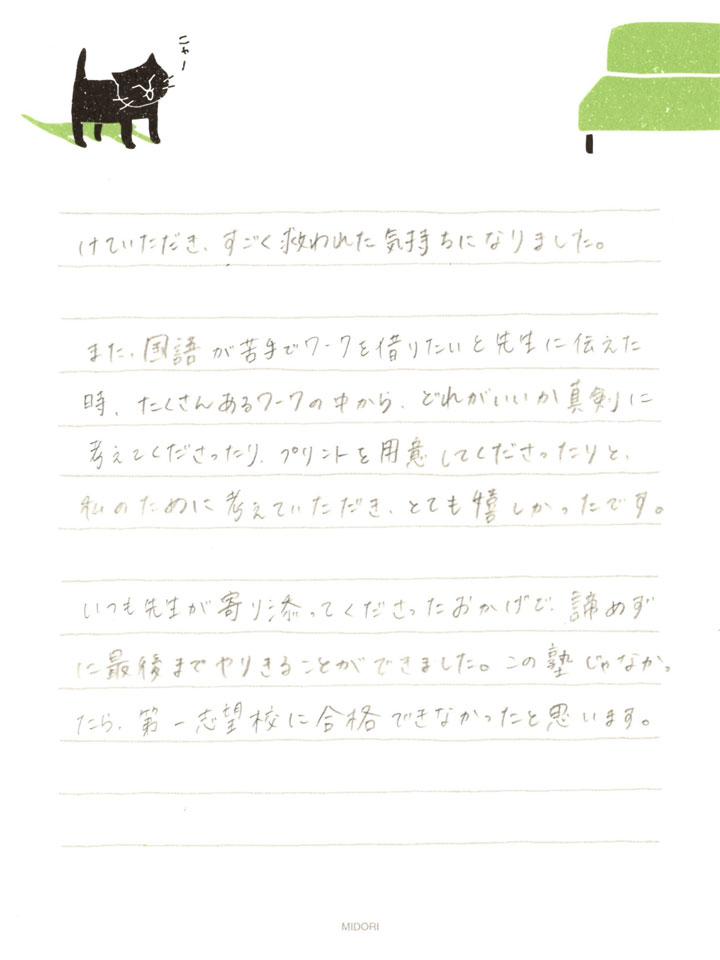 ニャー
けていただき、すごく救われた気持ちになりました。
また、国語が苦手でワークを借りたいと先生に伝えた
時、たくさんあるワークの中から、どれがいいか真剣に
考えてくださったり、プリントを用意してくださったりと、
私のために考えていただき、とても嬉しかったです。
いつも先生が寄り添ってくださったおかげで、諦めず
に最後までやりきることができました。この塾じゃなかっ
たら、第一志望校に合格できなかったと思います。
MIDORI